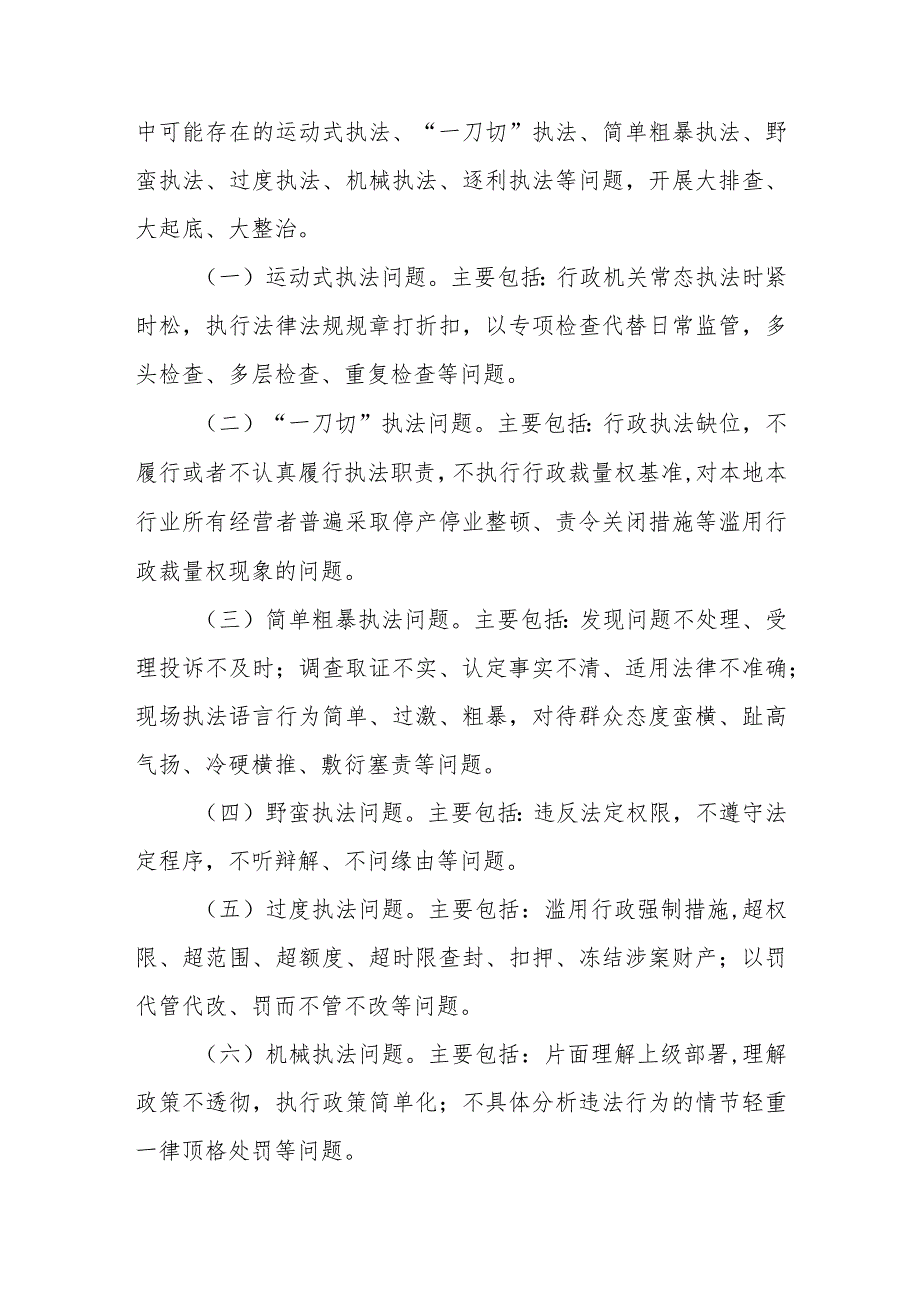 中可能存在的运动式执法、“一刀切”执法、简单粗暴执法、野
蛮执法、过度执法、机械执法、逐利执法等问题，开展大排查、
大起底、大整治。
（一）运动式执法问题。主要包括：行政机关常态执法时紧
时松，执行法律法规规章打折扣，以专项检查代替日常监管，多
头检查、多层检查、重复检查等问题。
（二）“一刀切”执法问题。主要包括：行政执法缺位，不
履行或者不认真履行执法职责，不执行行政裁量权基准,对本地本
行业所有经营者普遍采取停产停业整顿、责令关闭措施等滥用行
政裁量权现象的问题。
（三）简单粗暴执法问题。主要包括：发现问题不处理、受
理投诉不及时；调查取证不实、认定事实不清、适用法律不准确；
现场执法语言行为简单、过激、粗暴，对待群众态度蛮横、趾高
气扬、冷硬横推、敷衍塞责等问题。
（四）野蛮执法问题。主要包括：违反法定权限，不遵守法
定程序，不听辩解、不问缘由等问题。
（五）过度执法问题。主要包括：滥用行政强制措施,超权
限、超范围、超额度、超时限查封、扣押、冻结涉案财产；以罚
代管代改、罚而不管不改等问题。
（六）机械执法问题。主要包括：片面理解上级部署,理解
政策不透彻，执行政策简单化；不具体分析违法行为的情节轻重
一律顶格处罚等问题。